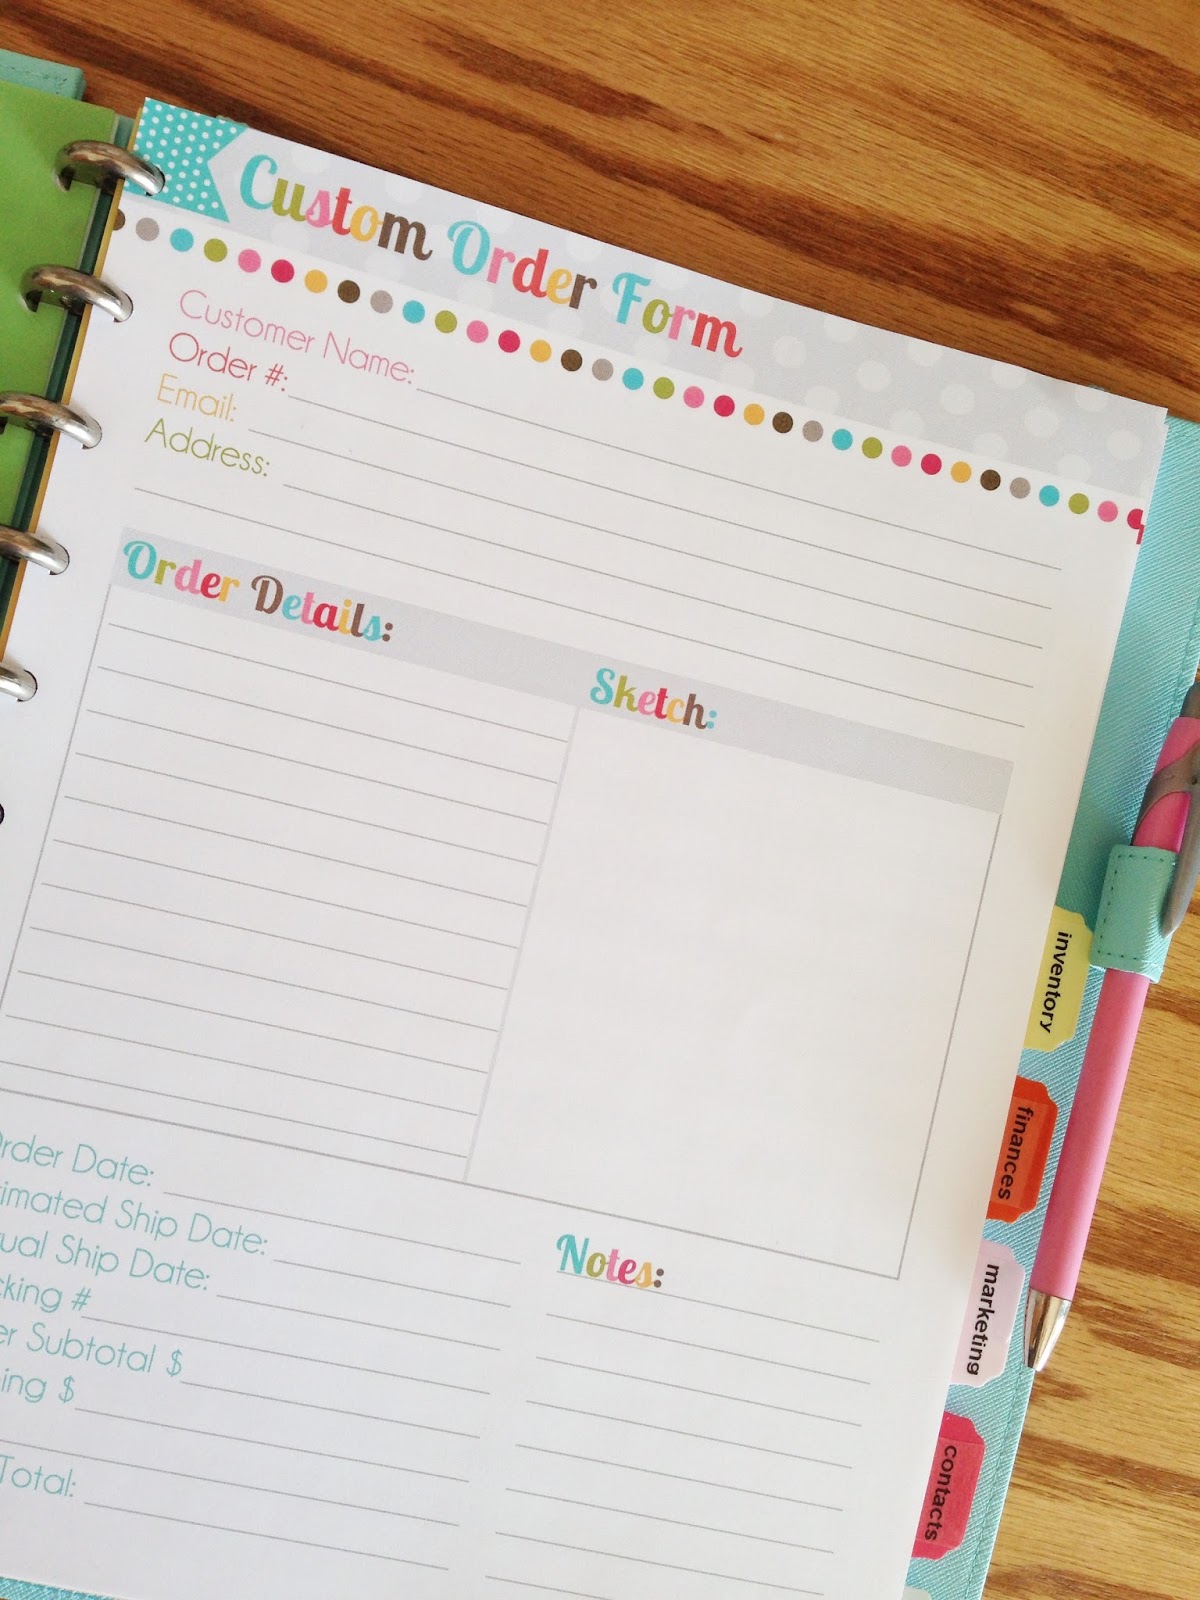 Custom Order Form
Customer Name:
Order #:
Email:
Address:
Order Details:
Sketch:
rder Date:
imated Ship Date:
ual Ship Date:
cking #
er Subtotal $
ing $
Total:
Notes:
inventory
finances
marketing
contacts